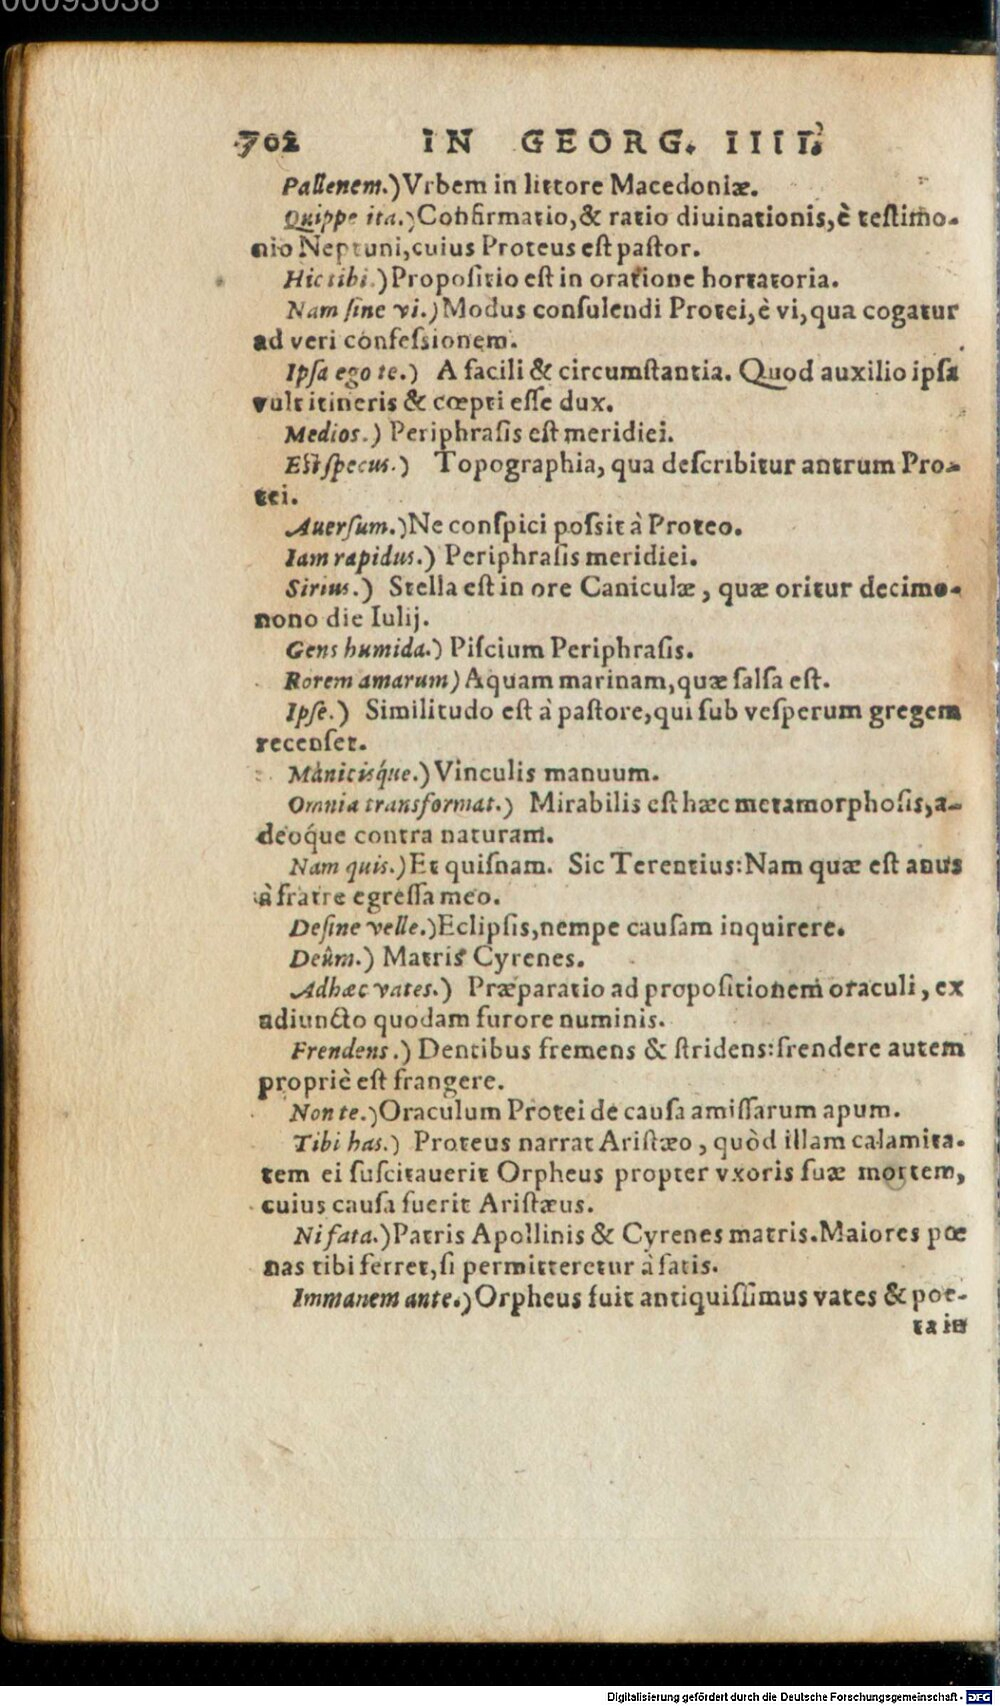 00093038
702 IN GEORG. IIII.
Pallenem.) Vrbem in littore Macedoniæ.
Quippe ita.) Confirmatio, & ratio diuinationis, è testimo-
nio Neptuni, cuius Proteus est pastor.
Hic tibi.) Propositio est in oratione hortatoria.
Nam sine vi.) Modus consulendi Protei, è vi, qua cogatur
ad veri confessionem.
Ipsa ego te.) A facili & circumstantia. Quod auxilio ipsa
vult itineris & cœpti esse dux.
Medios.) Periphrasis est meridiei.
Est specus.) Topographia, qua describitur antrum Pro-
tei.
Auersum.) Ne conspici possit à Proteo.
Iam rapidus.) Periphrasis meridiei.
Sirius.) Stella est in ore Caniculæ, quæ oritur decimo-
nono die Iulij.
Gens humida.) Piscium Periphrasis.
Rorem amarum) Aquam marinam, quæ salsa est.
Ipse.) Similitudo est à pastore, qui sub vesperum gregem
recenset.
Manicisq́ue.) Vinculis manuum.
Omnia transformat.) Mirabilis est hæc metamorphosis, a-
deoq́ue contra naturam.
Nam quis.) Et quisnam. Sic Terentius: Nam quæ est anus
à fratre egressa meo.
Desine velle.) Eclipsis, nempe causam inquirere.
Deûm.) Matris Cyrenes.
Adhæc vates.) Præparatio ad propositionem oraculi, ex
adiuncto quodam furore numinis.
Frendens.) Dentibus fremens & stridens: frendere autem
propriè est frangere.
Non te.) Oraculum Protei de causa amissarum apum.
Tibi has.) Proteus narrat Aristæo, quòd illam calamita-
tem ei suscitauerit Orpheus propter vxoris suæ mortem,
cuius causa fuerit Aristæus.
Ni fata.) Patris Apollinis & Cyrenes matris. Maiores pœ
nas tibi ferret, si permitteretur à fatis.
Immanem ante.) Orpheus fuit antiquissimus vates & poe-
ta in
Digitalisierung gefördert durch die Deutsche Forschungsgemeinschaft - DFG